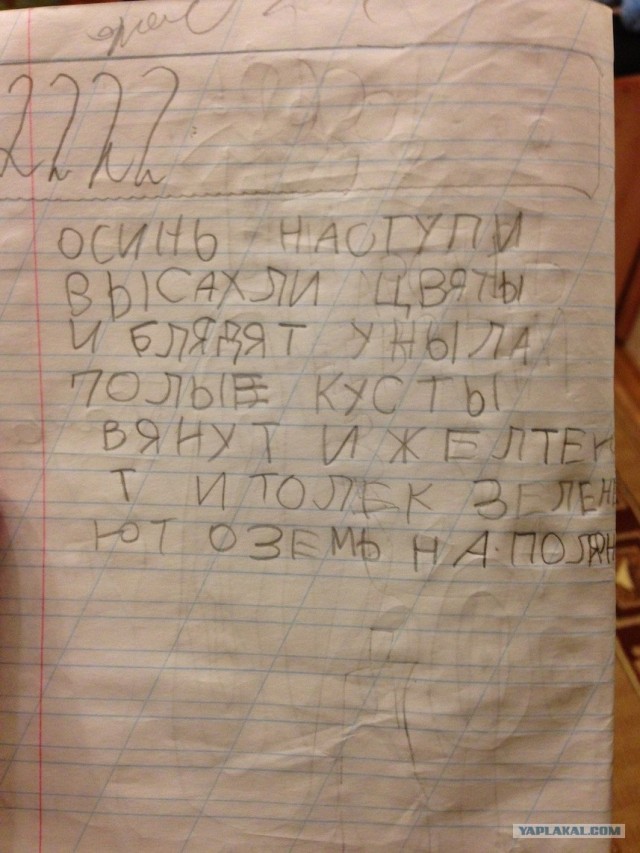 2222
ОСИНЬ НАСТУПИ
ВЫСАХЛИ ЦВЯТЫ
И БЛЯДЯТ УНЫЛА
ГОЛЫЕ КУСТЫ
ВЯНУТ И ЖЕЛТЕЮ
Т И ТОЛЕК ЗЕЛЕНЕ
ЮТ ОЗЕМЬ НА ПОЛЯН
YAPLAKAL.COM